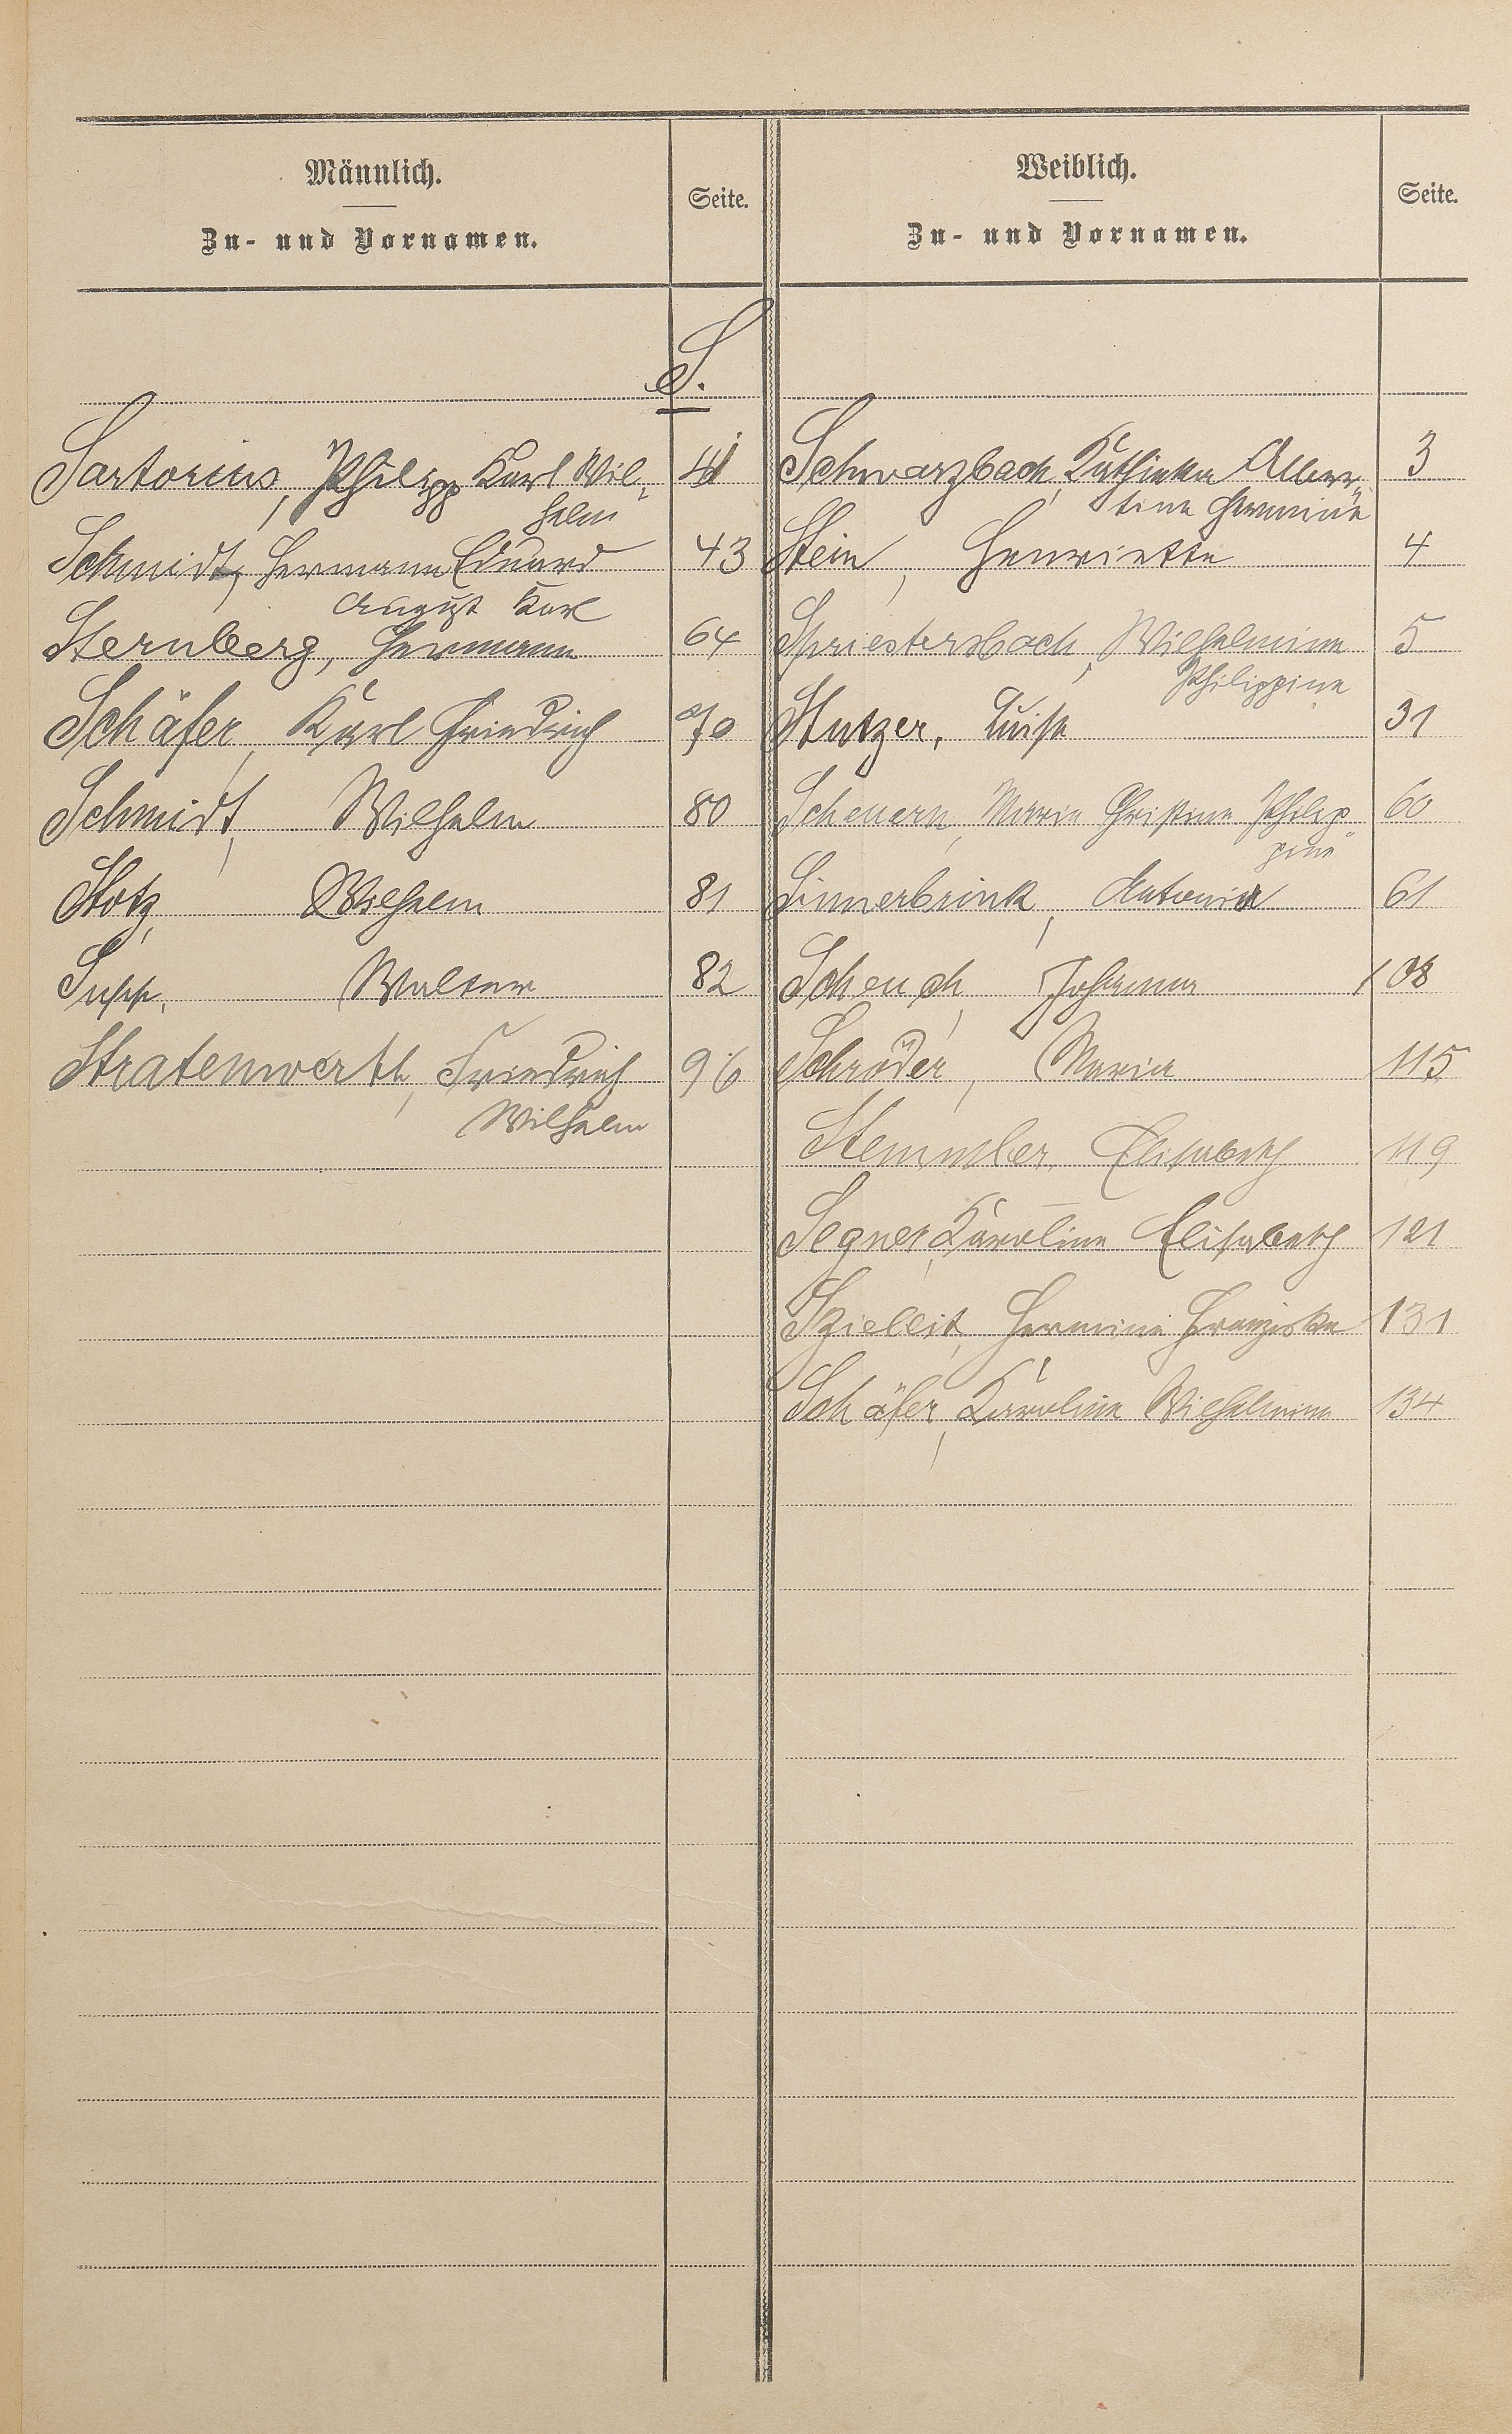 Männlich.
Zu- und Vornamen.
Seite.
Weiblich.
Zu- und Vornamen.
Seite.
S.
Sartorius, Philipp Karl Wil-
helm
41
Schmidt, Hermann Eduard
August Karl
43
Sternberg, Hermann
64
Schäfer, Karl Friedrich
70
Schmidt, Wilhelm
80
Stotz, Wilhelm
81
Supp, Walter
82
Stratenwerth, Friedrich
Wilhelm
96
Schwarzbach, Kathinka Alber-
tine Hermine
3
Stein, Henriette
4
Spriestersbach, Wilhelmine
Philippine
5
Stutzer, Luise
31
Scheuern, Marie Christine Philip-
pine
60
Sinnerbrink, Antonia
61
Scheuch, Johanna
108
Schröder, Maria
115
Stemmler, Elisabeth
119
Segner, Karoline Elisabeth
121
Szielleit, Hermine Franziska
131
Schäfer, Karoline Wilhelmine
134